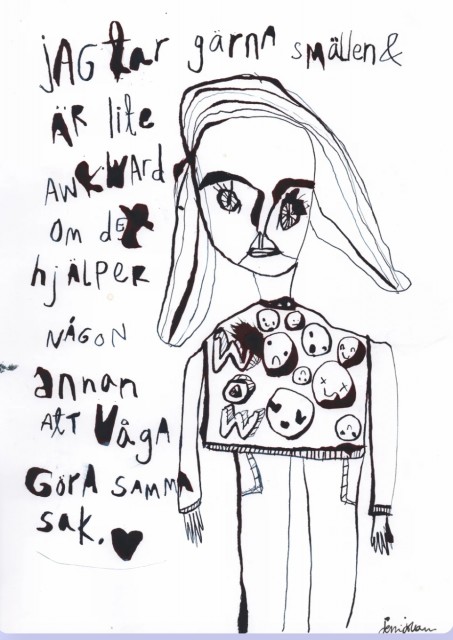 JAG tar gärna smällen &
ÄR lite
AWKWARD
om det
hjÄLPER
NÅGON
annan
ATT VÅGA
GÖRA SAMMA
sak.
W
O
W